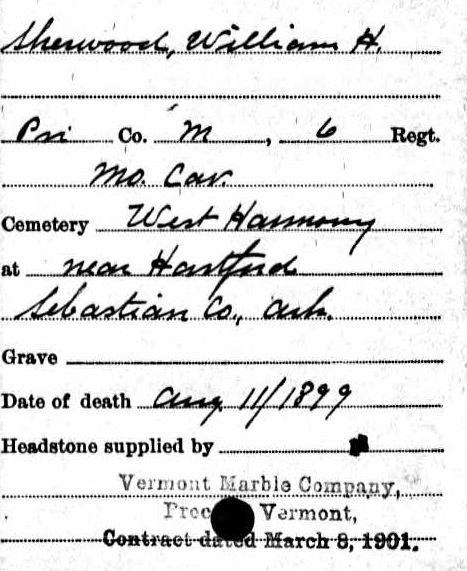 Sherwood, William H.
Pri Co. M, 6 Regt.
Mo. Cav.
Cemetery West Harmony
at near Hartford
Sebastian Co., Ark.
Grave
Date of death Aug 11/1899
Headstone supplied by
Vermont Marble Company,
Vermont,
Contract dated March 8, 1901.